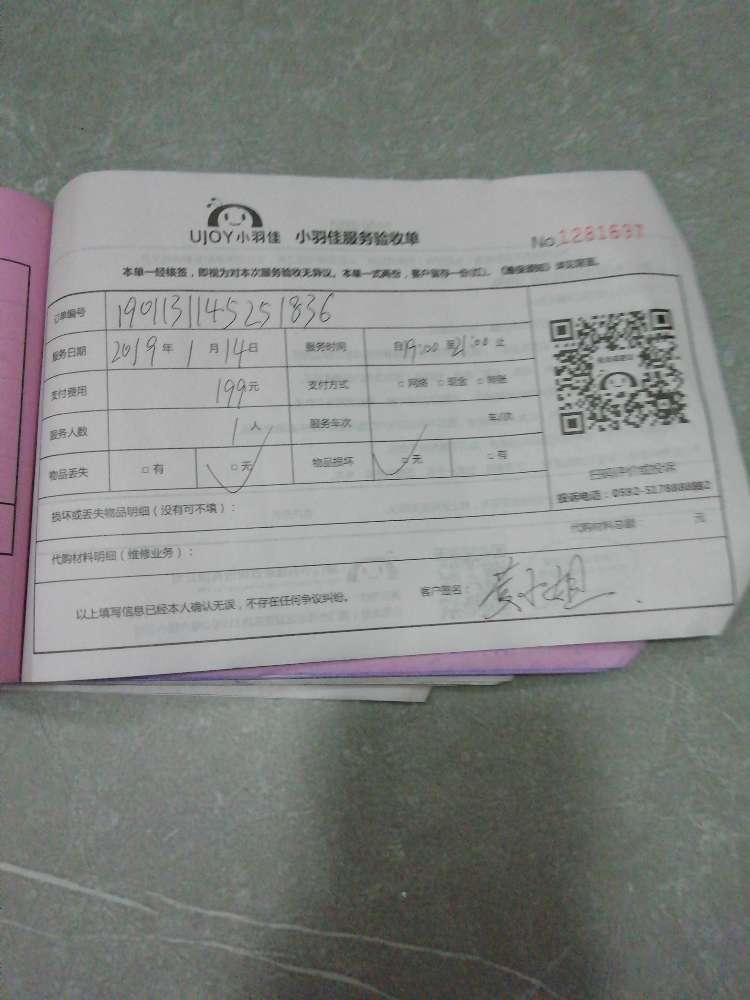 UJOY小羽佳 小羽佳服务验收单 No.1281637
本单一经核签，即视为对本次服务验收无异议。本单一式两份，客户留存一份(红)。
订单编号 1901131145251836
服务日期 2019年1月14日 服务时间 自19:00至21:00止
支付费用 199元 支付方式 □网络 □现金 □转账
服务人数 1人 服务车次 车/次
物品丢失 □有 □无 物品损坏 □无 □有
扫码评价或投诉
投诉电话：0592-5178888
损坏或丢失物品明细（没有可不填）：
代购材料明细（维修业务）： 代购材料总额： 元
以上填写信息已经本人确认无误，不存在任何争议纠纷。 客户签名：